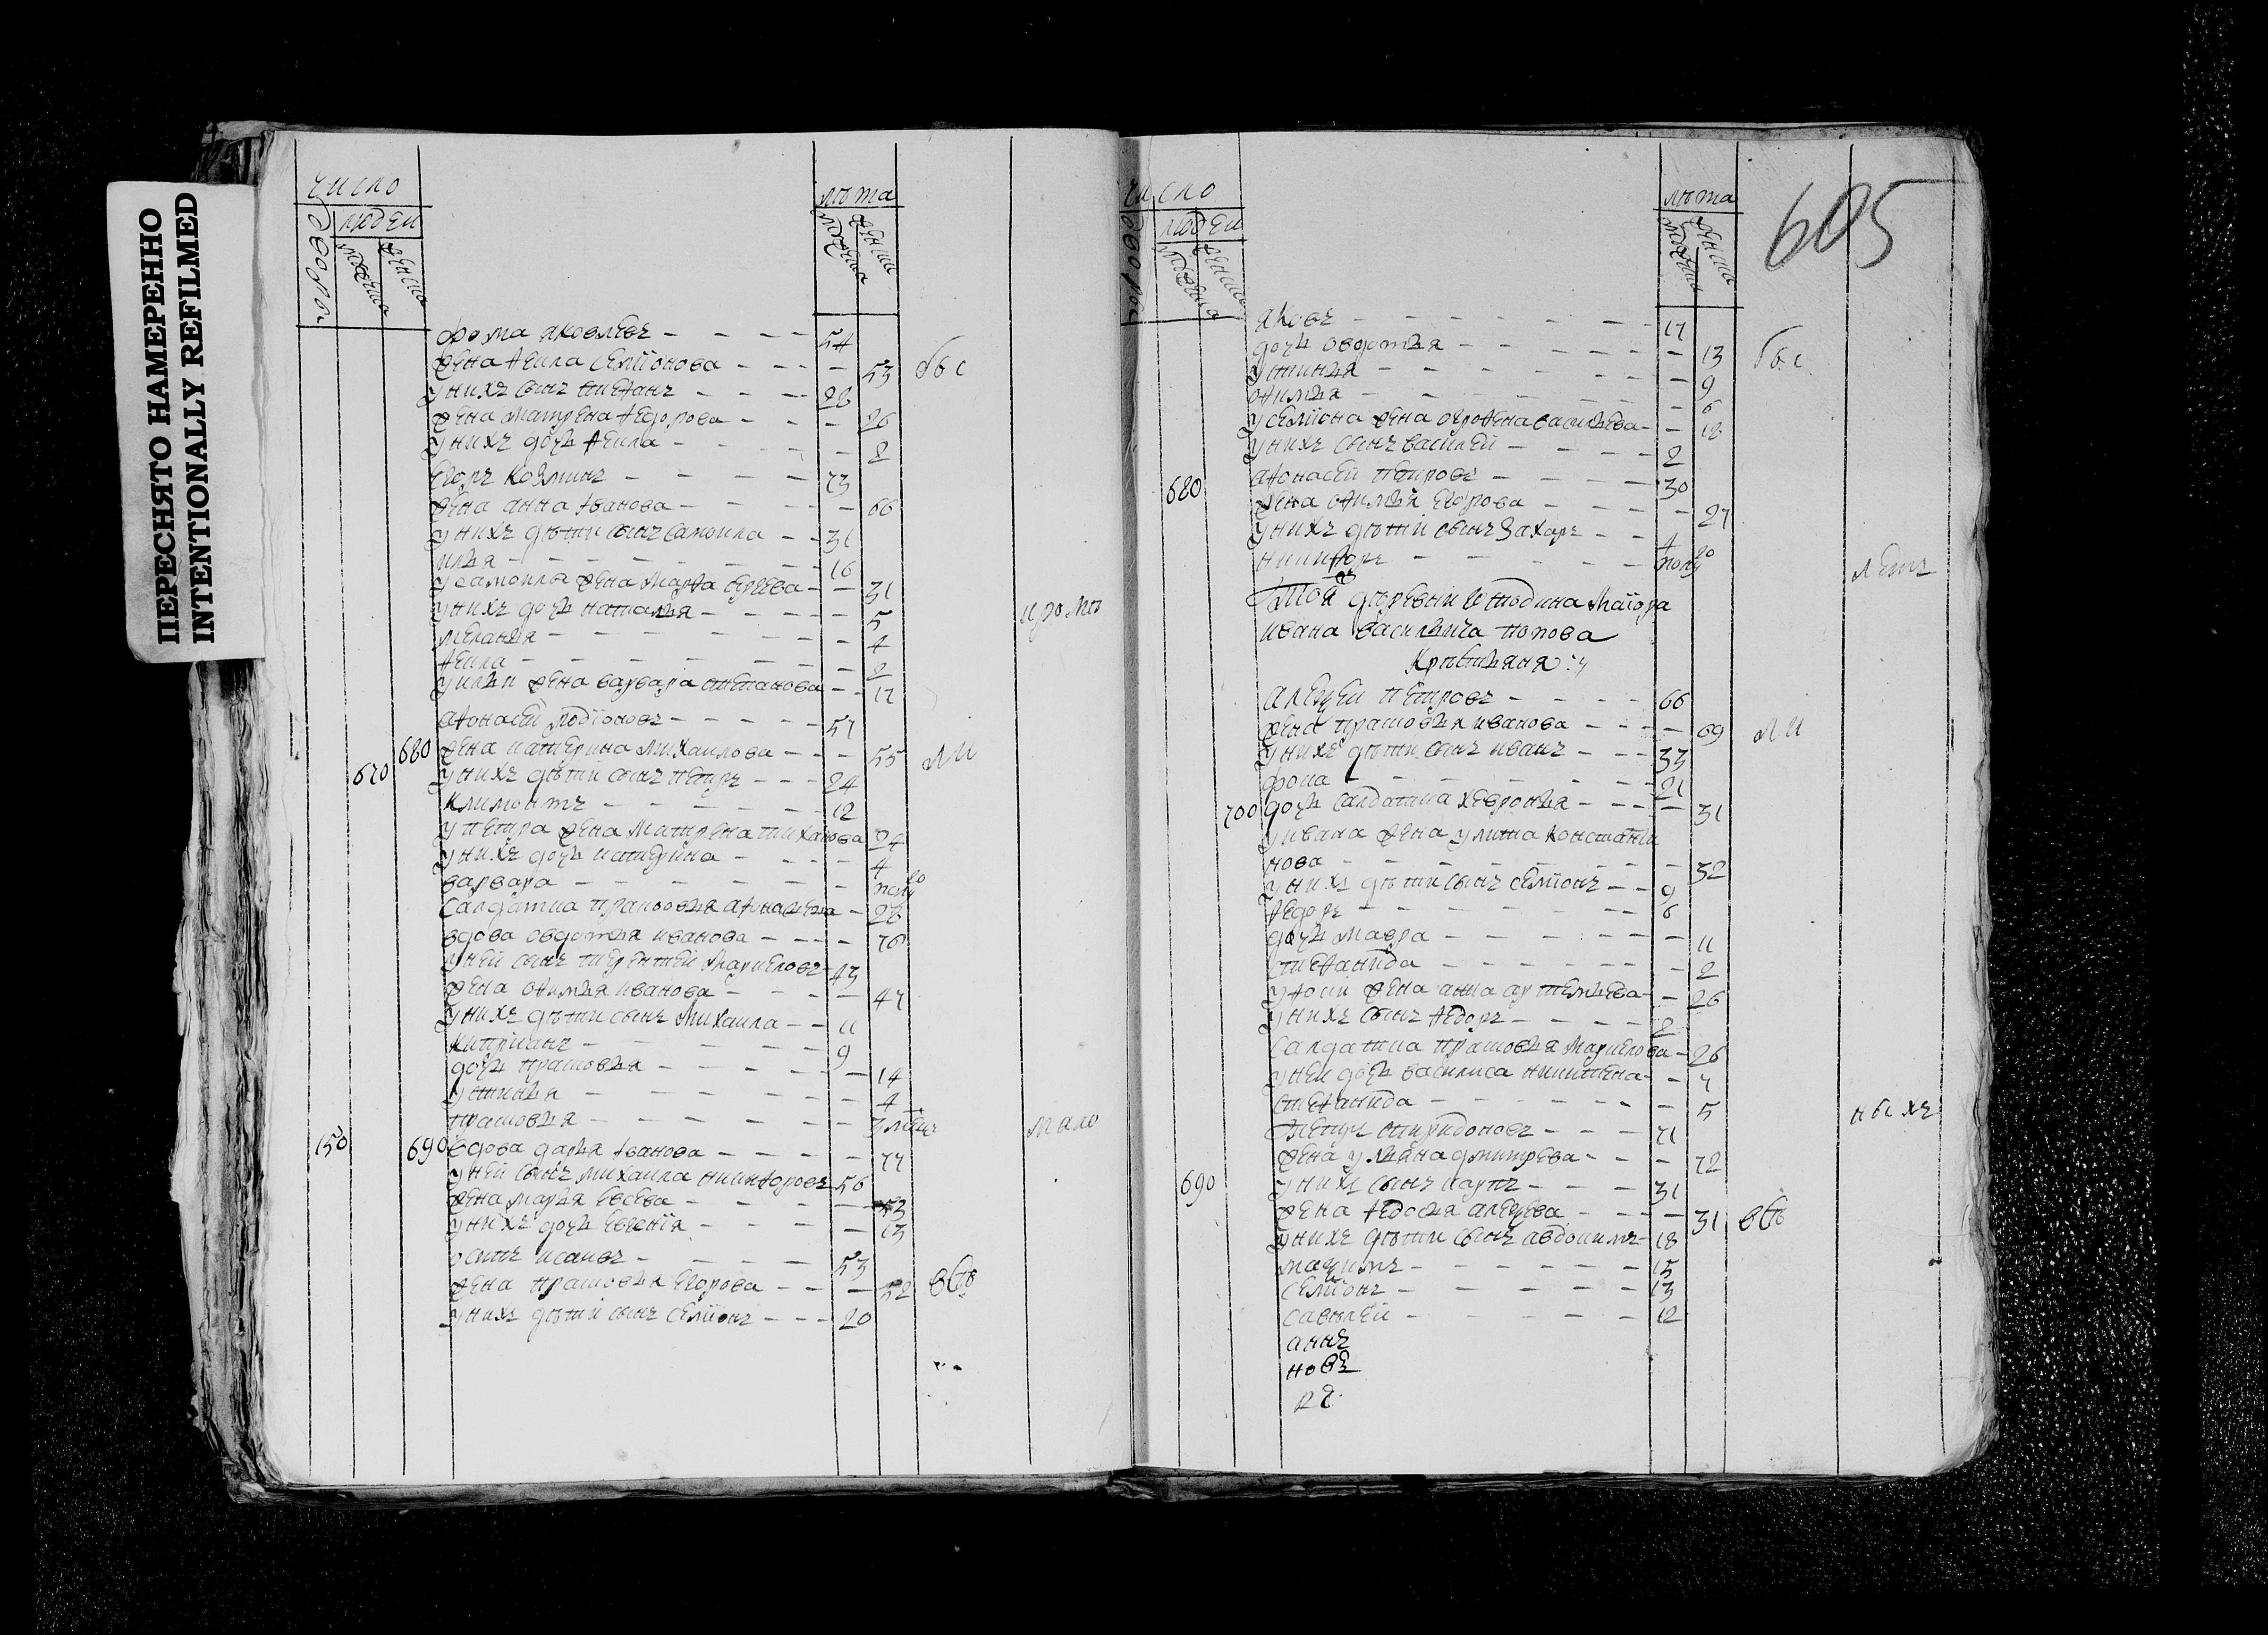 ПЕРЕСНЯТО НАМЕРЕННО
INTENTIONALLY REFILMED
число
дворов
людей
мужеска
женска
лѣта
мужеска
женска
фома яковлевъ - - - - 54
жена Ѳекла семїонова - - - - 53 обыс
у нихъ сынъ степанъ - - - - 28
жена матрена Ѳедорова - - - - 26
у нихъ дочь Ѳекла - - - - 2
егоръ козминъ - - - - 73
жена анна іванова - - - - 66
у нихъ дѣти сынъ самоила - - 31
илья - - - - 16
у самоилы жена марѲа - - 31
у нихъ дочь наталья - - - - 5 кромѣ
меланья - - - - 4
Ѳекла - - - - 2
у ильи жена варвара степанова - - 17
аѲонасей родїоновъ - - - - 57
680 жена катерина михаилова - - - 55 ли
670 у нихъ дѣти сынъ петръ - - - 24
климонтъ - - - - 12
у петра жена матрена тиханова 24
у нихъ дочь катерина - - - - 4
варвара - - - - полу
салдатка прасковья аѲонасьева - 28
вдова овдотья иванова - - - - 76
у ней сынъ терентей маркеловъ - 43
жена оѲимья иванова - - - - 47
у нихъ дѣти сынъ михаила - - 11
киприянъ - - - - 9
дочь прасковья - - - - 14
устинья - - - - 4
прасковья - - - - 3 мало
150 690 вдова дарья іванова - - - - 77
у ней сынъ михаила никиѲоровъ 56
жена марья евсева - - - - 53
у нихъ дочь евгенїя - - - - 13
осипъ исаивъ - - - - 53
жена прасковья егорова - - - 52
у нихъ дѣти сынъ семїонъ - - - 20
число
дворов
людей
мужеска
женска
лѣта
мужеска
женска
605
яковъ - - - - 17
дочь овдотья - - - - 13 обыс
устинья - - - - 9
оѲимья - - - - 6
у семїона жена огроѲена васильева - - 18
у нихъ сынъ василей - - - - 2
680 аѲонасей петровъ - - - - 30
жена оѲимья егорова - - - - 27
у нихъ дѣти сынъ захаръ - - 4
никиѲоръ - - - - полу летъ
Тоя деревни господина маїора
ивана васильича попова
крестьяня :
алексей петровъ - - - - 66
жена прасковья иванова - - - - 69 ли
у нихъ дѣти сынъ иванъ - - - 33
фока - - - - 21
700 дочь салдатка хевронья - - - - 31
у ивана жена улита константи
нова - - - - 32
у нихъ дѣти сынъ семїонъ - - 9
Ѳедоръ - - - - 6
дочь мавра - - - - 11
степанида - - - - 2
у Ѳоки жена анна артемьева - - 26
у нихъ сынъ Ѳедоръ - - - - 2
салдатка прасковья маркелова - 26
у ней дочь василиса никитена - - 7
степанида - - - - 5 ныхъ
спиридоновъ - - - 71
жена ульяна дмитрева - - - - 72
690 у нихъ сынъ карпъ - - - - 31
жена Ѳедосья алексева - - - - 31
у нихъ дѣти сынъ авдокимъ - 18
максимъ - - - - 15
семїонъ - - - - 13
савелей - - - - 12
аннъ
новъ